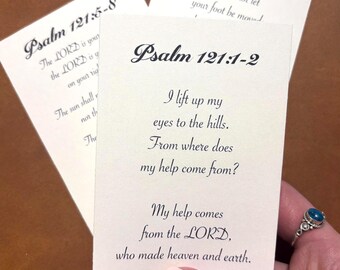 Psalm 121:5-8
The LORD is your
the LORD is your
on your righ
The sun shall
not th
The
let
your foot be moved
Psalm 121:1-2
I lift up my
eyes to the hills.
From where does
my help come from?
My help comes
from the LORD,
who made heaven and earth.